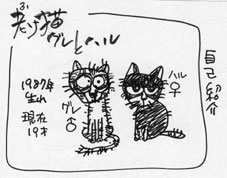 老猫
グレとハル
自己紹介
ハル
♀
1987年
生れ
現在
19才
グレ
♂